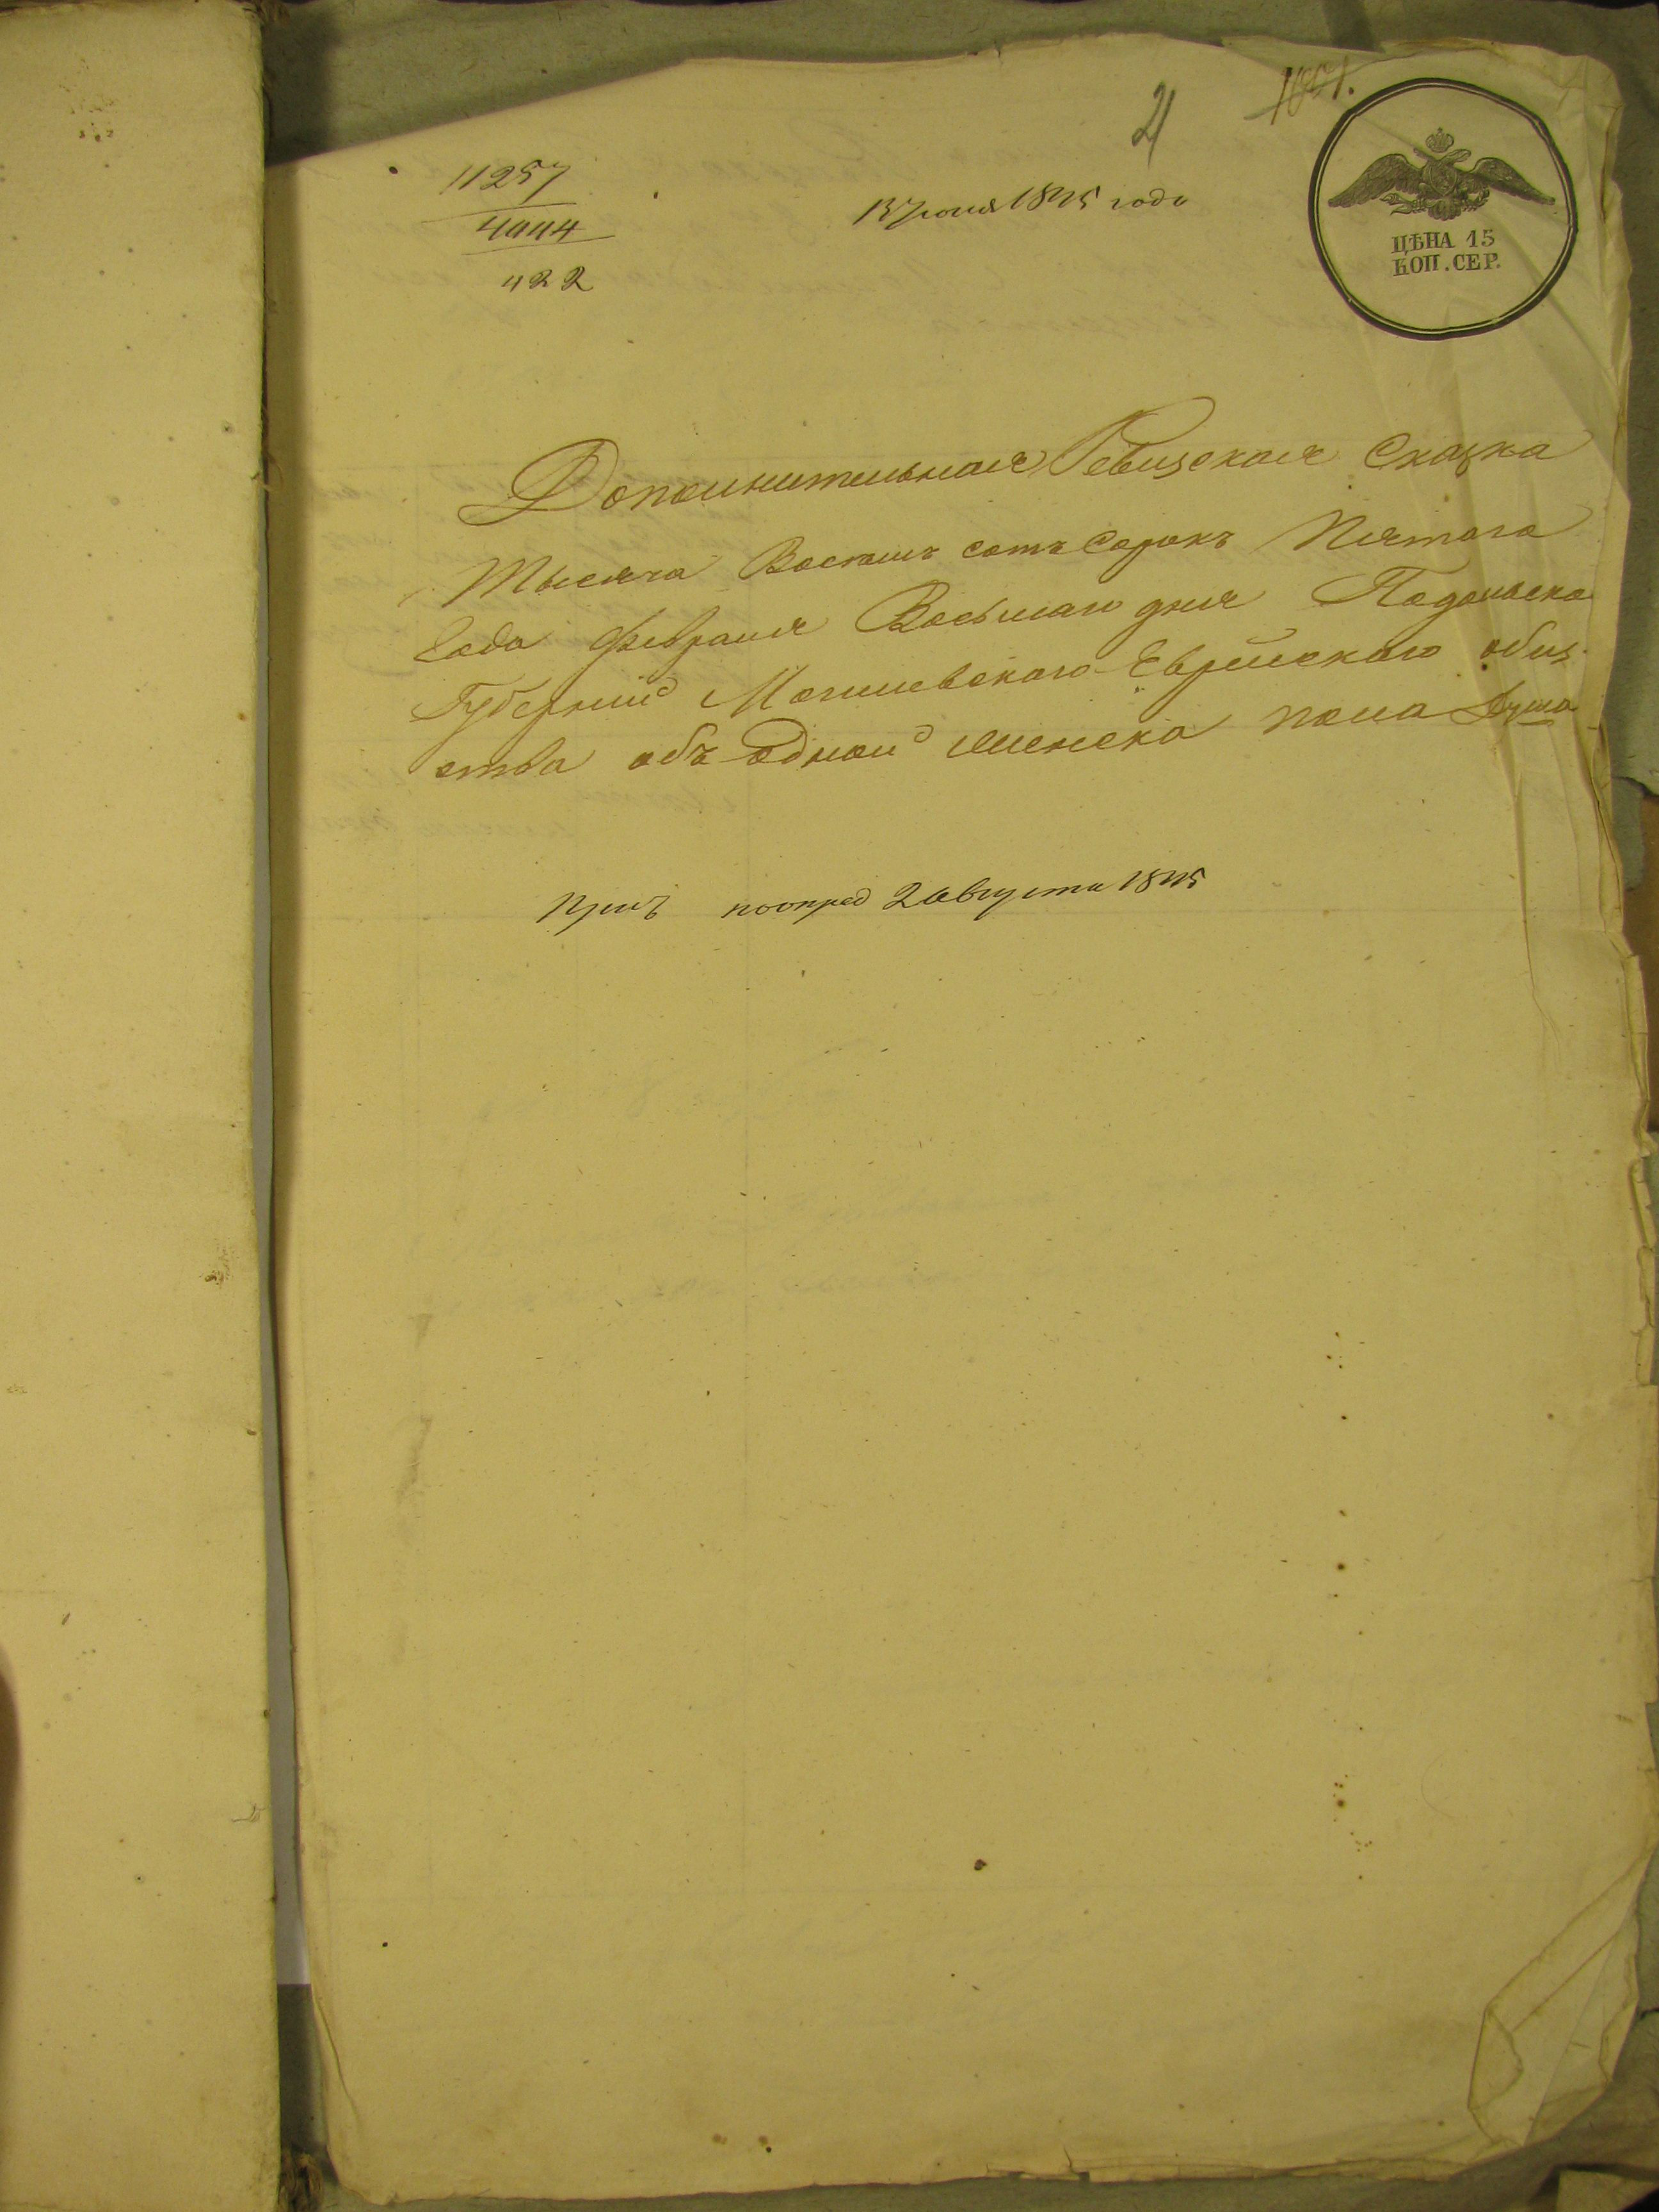 21
11257
4444
422
13 Июня 1845 года
ЦѢНА 15
КОП. СЕР.
Дополнительная Ревизская Сказка
Тысяча Восемь сотъ Сорокъ Пятаго
Года Февраля Восьмаго дня Подольско
Губерніи Могилевскаго Еврейскаго общ
ства объ Одной женска пола душа
2 Августа 1845